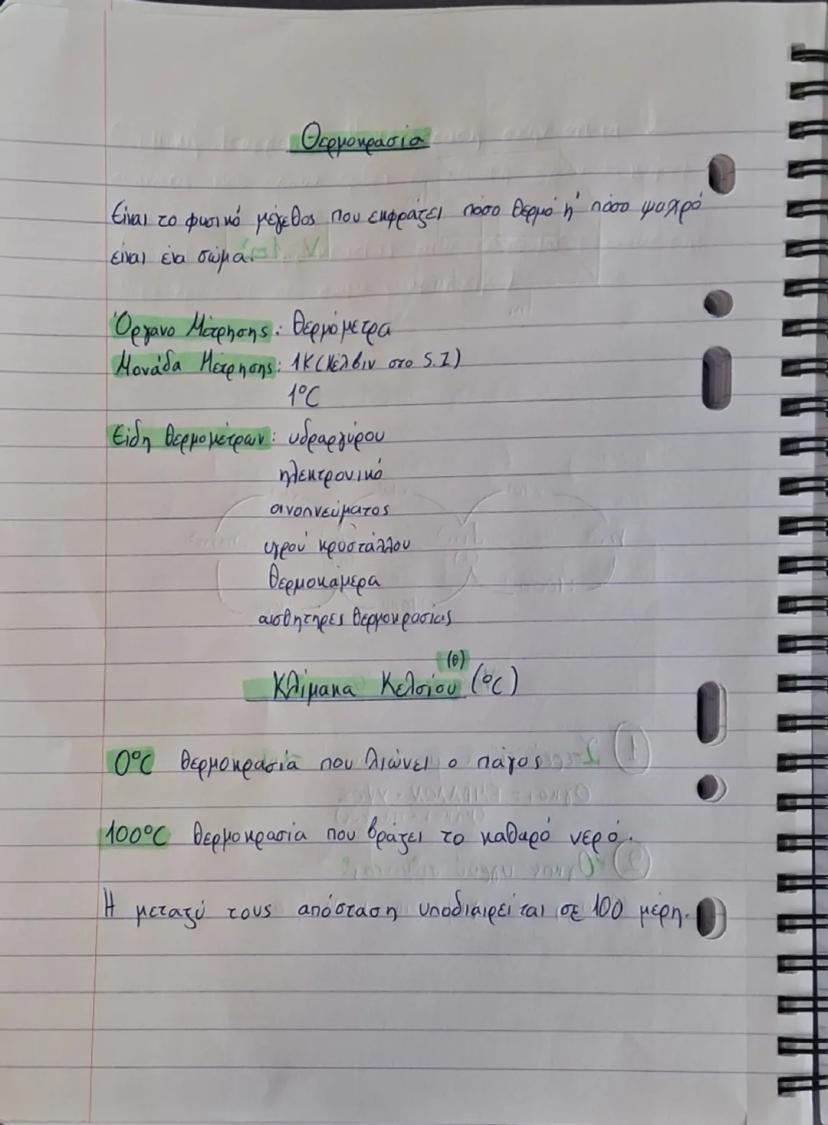 Θερμοκρασία
Είναι το φυσικό μέγεθος που εκφράζει πόσο θερμό ή πόσο ψυχρό
είναι ένα σώμα.
Όργανο Μέτρησης: Θερμόμετρα
Μονάδα Μέτρησης: 1Κ (Κέλβιν στο S.I)
1°C
Είδη θερμομέτρων: υδραργύρου
ηλεκτρονικό
οινοπνεύματος
υγρού κρυστάλλου
θερμοκάμερα
αισθητήρες θερμοκρασίας
(θ)
Κλίμακα Κελσίου (°C)
0°C θερμοκρασία που λιώνει ο πάγος
100°C θερμοκρασία που βράζει το καθαρό νερό.
Η μεταξύ τους απόσταση υποδιαιρείται σε 100 μέρη.